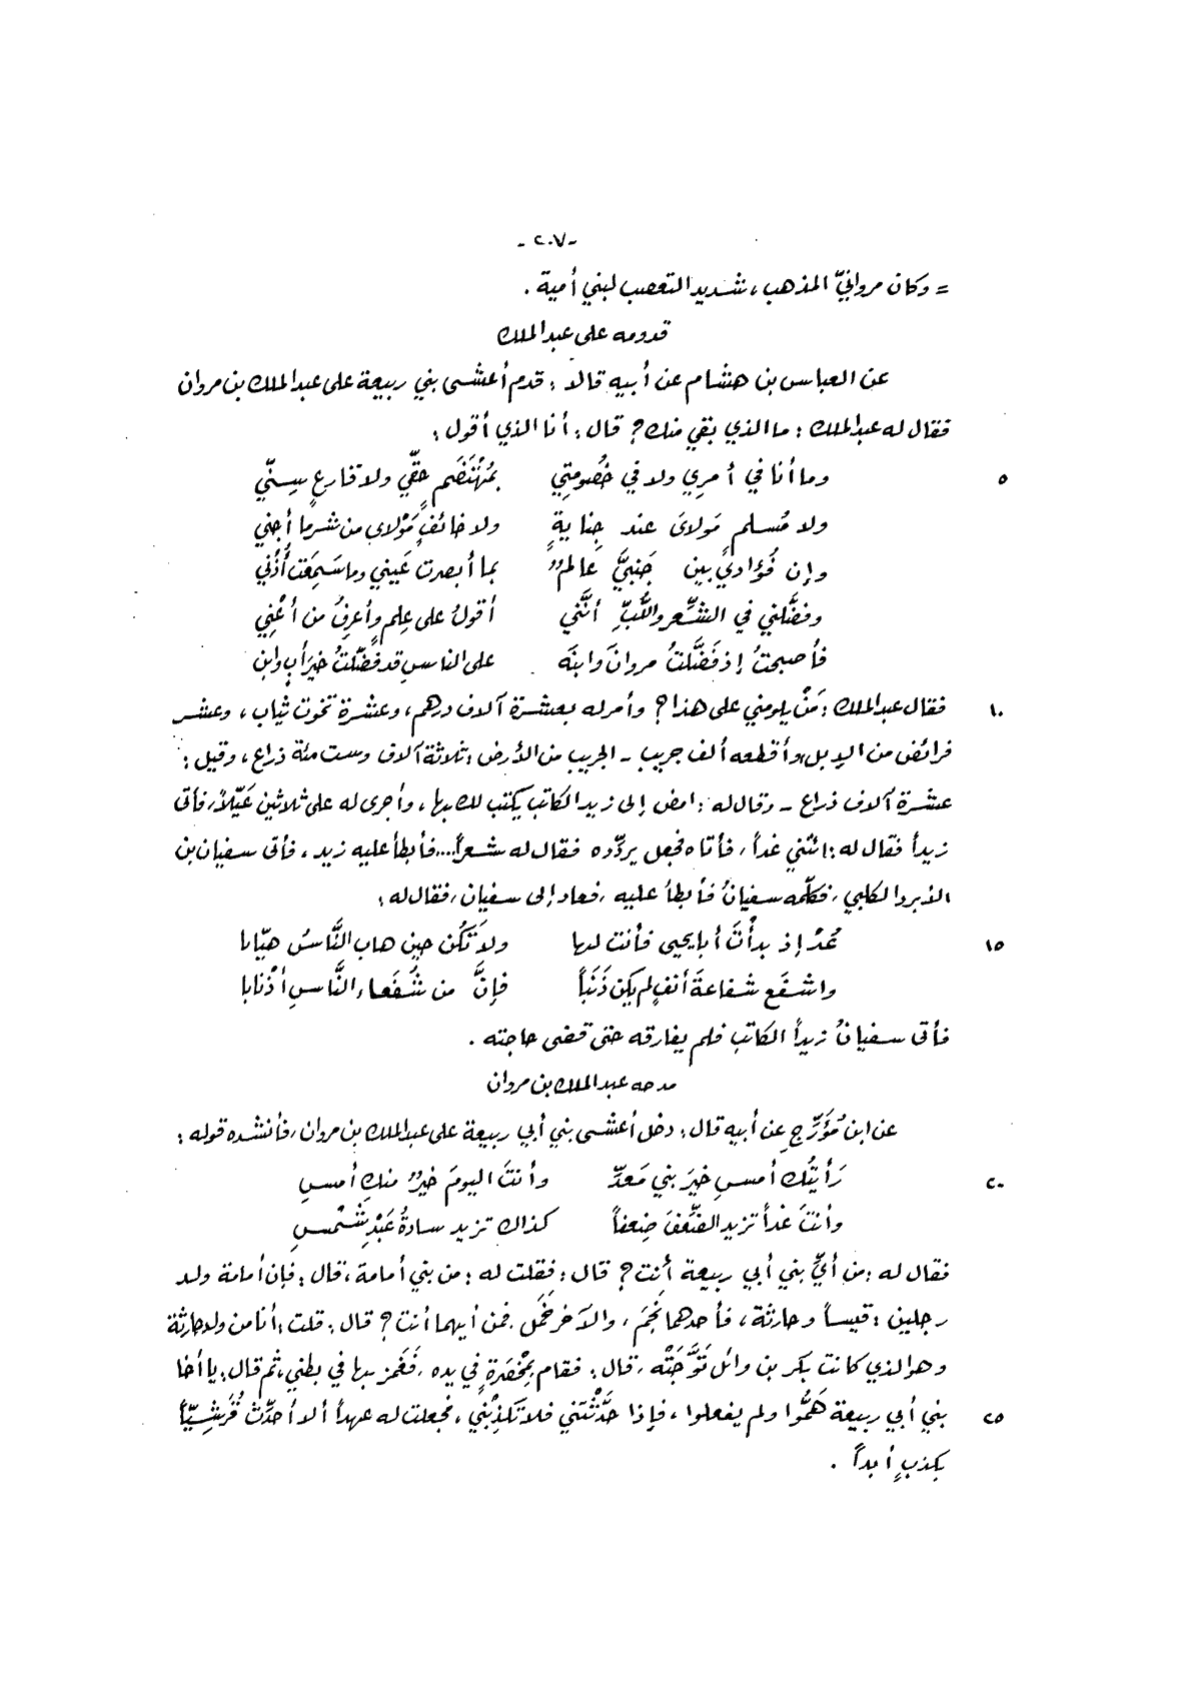 -٢٠٧-
= وكان مروانيَّ المذهب، شديد التعصب لبني أمية .
قدومه على عبد الملك
عن العباس بن هشام عن أبيه قالا : قدم أعشى بني ربيعة على عبد الملك بن مروان
فقال له عبد الملك : ما الذي بقي منك ؟ قال : أنا الذي أقول :
٥ وما أنا في أمرِي ولا في خُصُومتِي بمُهْتَضَمٍ حقّي ولا قارعٍ سِنّي
ولا مُسلمٍ مَولاىَ عند جِنايةٍ ولا خائفٍ مَوْلاى من شرما أجني
وإن فُؤاديَ بين جَنبيَّ عَالمٌ بما أبصرت عَيني وما سَمِعَت أُذُني
وفضَّلني في الشِّعر واللُّبِّ أنَّني أقولُ على عِلمٍ وأعرِفُ من أعْنِي
فأصبحتُ إذ فَضَّلتُ مروانَ وابنَه على الناسِ قد فضَّلتُ خيرَ أبٍ وابن
١٠ فقال عبد الملك : مَنْ يلومني على هذا ؟ وأمر له بعشرة آلاف درهم، وعشرة تخوت ثياب ، وعشر
فرائض من الإبل، وأقطعه ألف جريب - الجريب من الأرض : ثلاثة آلاف وست مئة ذراع ، وقيل :
عشرة آلاف ذراع - وقال له : امض إلى زيد الكاتب يكتب لك بها، وأجرى له على ثلاثين عَيّلاً، فأتى
زيداً فقال له : ائتني غداً، فأتاه فجعل يردّده فقال له شعراً .... فأبطأ عليه زيد ، فأتى سفيان بن
الذبرد الكلبي، فكلّمه سفيانُ فأبطأ عليه ، فعاد إلى سفيان، فقال له :
١٥ عُدْ إذ بدأتَ أبا يحيى فأنت لها ولا تكُن حين هاب النَّاسُ هيّابا
واشفَع شفاعةَ أنفٍ لم يكن ذَنَباً فإنَّ من شُفَعاءِ النَّاسِ أذْنَابا
فأتى سفيانُ زيداً الكاتب فلم يفارقه حتى قضى حاجته .
مدحه عبد الملك بن مروان
عن ابن مُؤَرِّجٍ عن أبيه قال : دخل أعشى بني أبي ربيعة على عبد الملك بن مروان، فأنشده قوله :
٢٠ رَأيتُك أمسِ خيرَ بني مَعدٍّ وأنتَ اليومَ خيرٌ منكِ أمسِ
وأنتَ غداً تزيد الضِّعفَ ضِعفاً كذاك تزيد سادةُ عَبْدِ شَمْسِ
فقال له : من أيِّ بني أبي ربيعة أنت ؟ قال : فقلت له : من بني أمامة ، قال : فإن أمامة ولد
رجلين : قيساً وحارثة ، فأحدهما نَجَمَ ، والآخر خَمَل. فمن أيهما أنت ؟ قال : قلت : أنا من ولد حارثة
وهو الذي كانت بكر بن وائل تَوَّجَتْه ، قال : فقام بِمِخْصَرةٍ في يده ، فَغَمز بها في بطني، ثم قال : يا أخا
٢٥ بني أبي ربيعة هَمُّوا ولم يفعلوا ، فإذا حَدَّثْتَني فلا تَكذِبْني ، فجعلت له عهداً ألا أحدِّث قُرَشِيّاً
بكذبٍ أبداً .